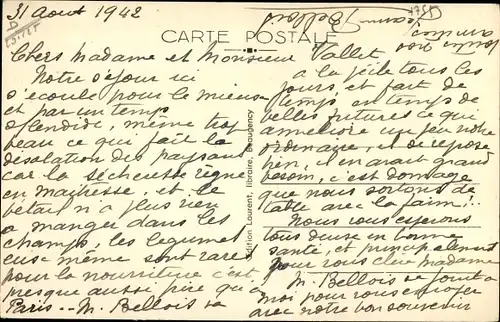 31 Aout 1942
CARTE POSTALE
Chers Madame et Monsieur Vallet
Notre séjour ici
s'écoule pour le mieux
et par un temps
splendide, même trop
beau ce qui fait la
désolation des paysans
car la sécheresse règne
en maîtresse, et le
bétail n'a plus rien
a manger dans les
champs, les legumes
eux même sont rares
pour la nourriture c'est
presque aussi pire qu'a
Paris. - M. Bellois va
Edition Laurent, libraire, Beaugency
a la pêche tous les
jours, et fait de
temps en temps de
belles fritures ce qui
améliore un peu notre
ordinaire, et se repose
bien, il en avait grand
besoin, c'est dommage
que nous sortons de
table avec la faim!..
Nous vous espérons
tous deux en bonne
santé, et principalement
pour vous chere madame
M. Bellois se joint a
moi pour vous envoyer
avec notre bon souvenir
toutes nos
amitiés